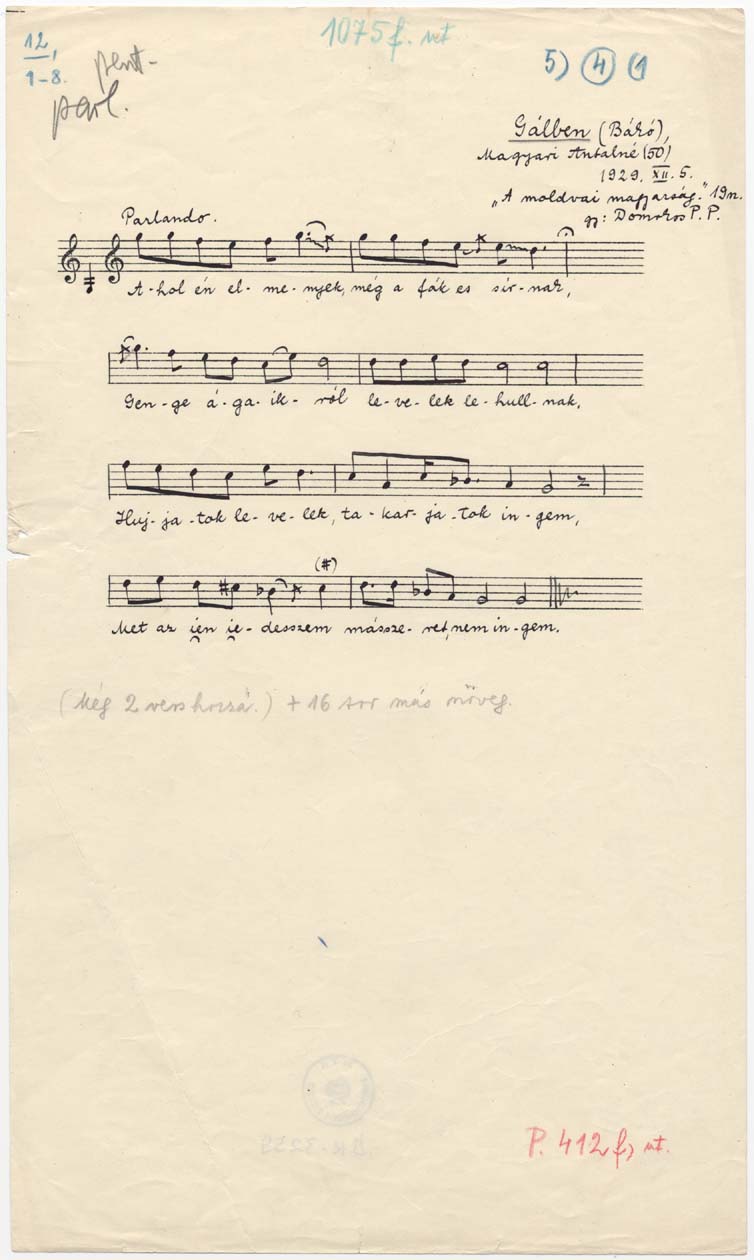 12,
1-8.
pent-
parl.
1075 f.
5) 4 (1
Gálben (Bákó),
Magyari Antalné (50)
1929. XII. 5.
„A moldvai magyarság." 19n.
gy: Domokos P. P.
Parlando.
A-hol én el-me-nyek, még a fák es sir-nak,
Gen-ge á-ga-ik-ról le-ve-lek le-hull-nak,
Huj-ja-tok le-ve-lek, ta-kar-ja-tok in-gem,
(#)
Met az ien ie-desszem mássze-ret, nem in-gem.
(Még 2 vers hozzá.) + 16 sor más szöveg.
P. 412 f,